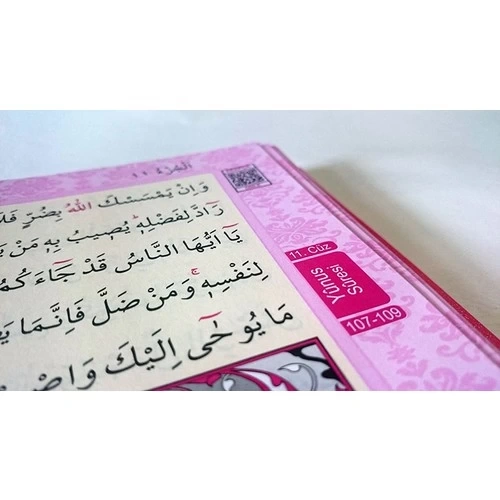 الجزء ١١
وَاِنْ يَمْسَسْكَ اللّٰهُ بِضُرٍّ فَلَا
رَٓادَّ لِفَضْلِه۪ۜ يُص۪يبُ بِه۪ مَنْ
يَٓا اَيُّهَا النَّاسُ قَدْ جَٓاءَكُمُ
لِنَفْسِه۪ۚ وَمَنْ ضَلَّ فَاِنَّمَا
مَا يُوحٰٓى اِلَيْكَ وَاصْ
11. Cüz
Yûnus
Sûresi
107-109